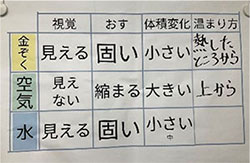 視覚 おす 体積変化 温まり方
金ぞく 見える 固い 小さい 熱したところから
空気 見えない 縮まる 大きい 上から
水 見える 固い 小さい 中